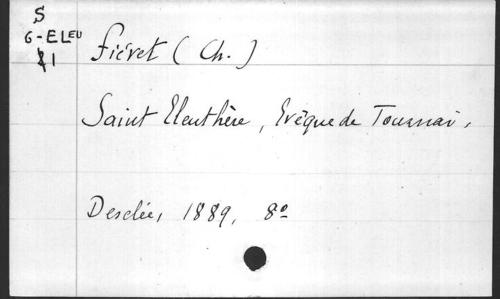 S
G-ELEU
21
Fiévet (Ch.)
Saint Eleuthère, Evêque de Tournai.
Desclée, 1889, 8º